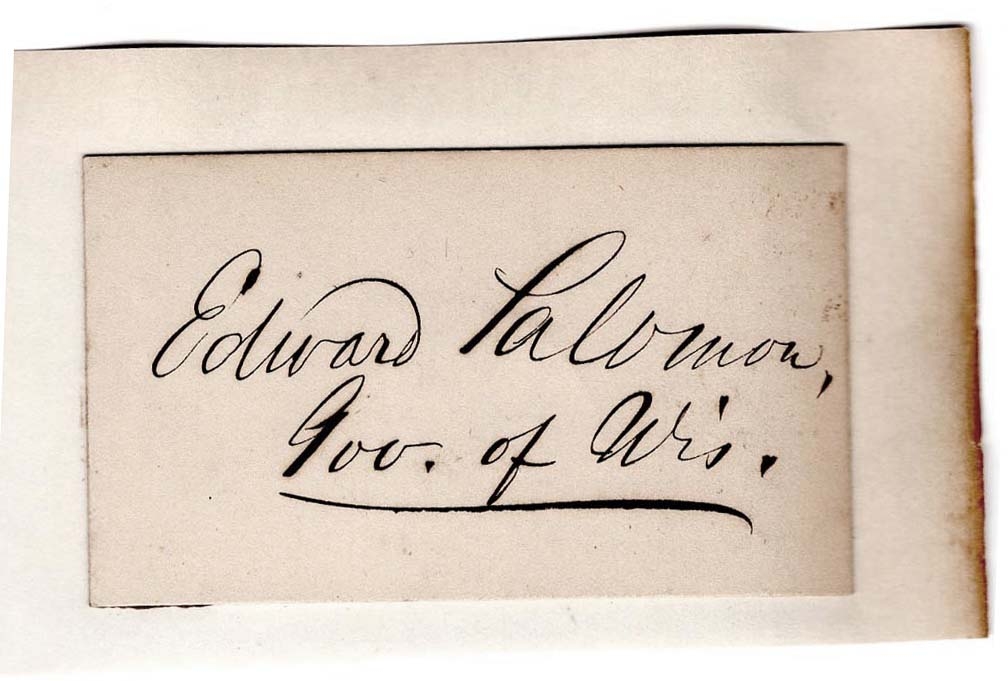 Edward Salomon,
Gov. of Wis.